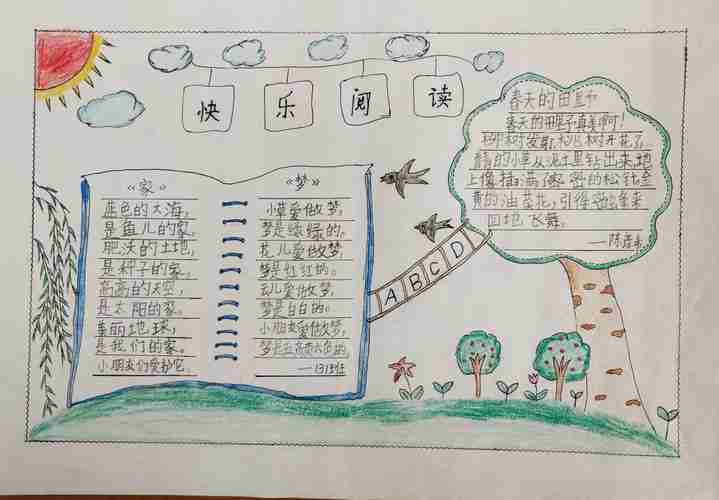 快乐阅读
《家》
蓝色的大海,
是鱼儿的家。
肥沃的土地,
是种子的家。
高高的天空,
是太阳的家。
美丽地球,
是我们的家。
小朋友们爱护它。
《梦》
小草爱做梦,
梦是绿绿的。
花儿爱做梦,
梦是红红的。
云儿爱做梦,
梦是白白的。
小朋友爱做梦,
梦是五颜六色的。
A B C D
春天的田野
春天的田野真美啊!
柳树发芽,桃树开花了
的小草从泥土里钻出来,地
上像插满了密密的松针,金
黄的油菜花,引得蜂来
回地飞舞。